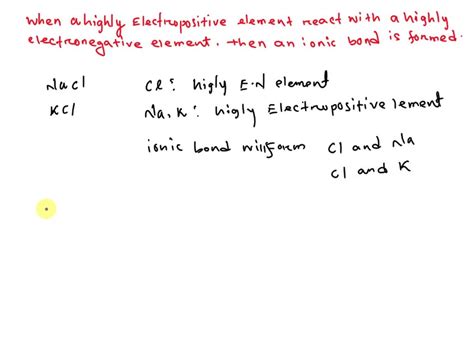 when a highly Electropositive element react with a highly
electronegative element. then an ionic bond is formed.
NaCl Cl: higly E.N element
KCl Na, K: higly Electropositive lement
ionic bond will form Cl and Na
Cl and K